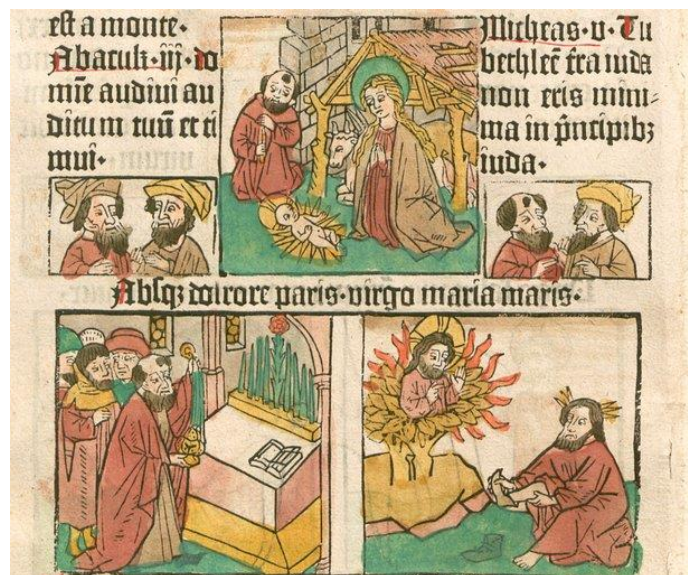 est a monte·
Abacuk·iij·do
mīe audiui au
ditum tuū et ti
mui·
Micheas·v·Tu
bethleē tra iuda
non eris mini⸗
ma in p̄ncipibꝫ
iuda·
Absqꝫ dolrore paris·virgo maria maris·